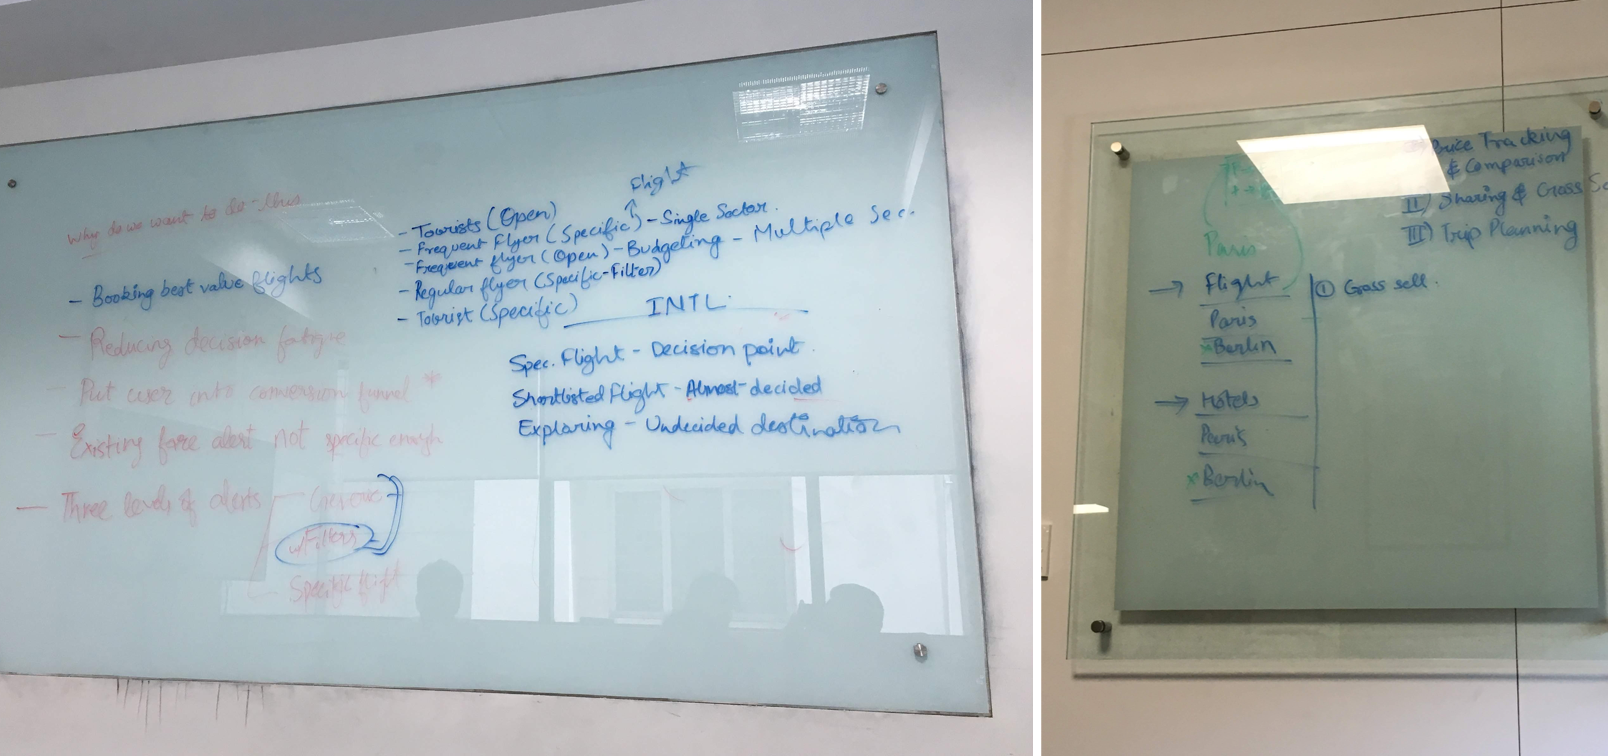 Why do we want to do this
- Booking best value flights
- Reducing decision fatigue
- Put user into conversion funnel
- Existing fare alert not specific enough
- Three levels of alerts
Generic
w/Filters
Specific flight
Flight
- Tourists (Open)
- Frequent Flyer (Specific) - Single Sector.
- Frequent flyer (Open) - Budgeting - Multiple Sec.
- Regular flyer (Specific-Filter)
- Tourist (Specific)
INTL.
Spec. Flight - Decision point.
Shortlisted Flight - Almost decided
Exploring - Undecided destination
Price Tracking
& Comparison
II) Sharing & Cross
III) Trip Planning
Paris
→ Flight
Paris
x Berlin
→ Hotels
Paris
x Berlin
① Cross sell.